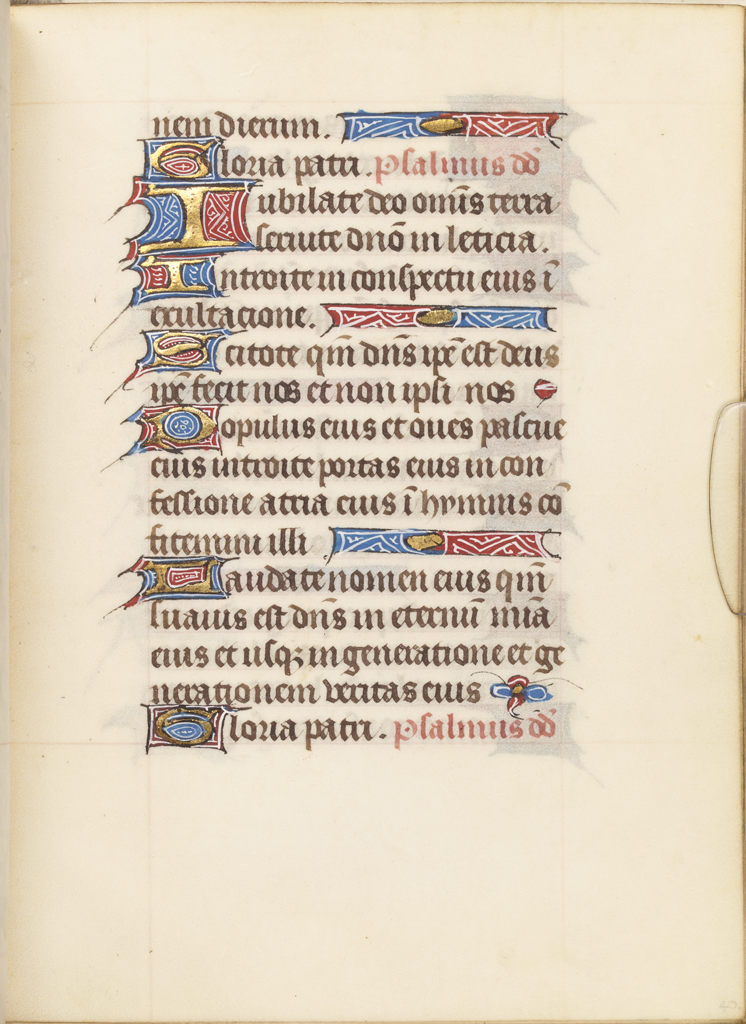 nem dierum.
Gloria patri. Psalmus dd
Iubilate deo om̄is terra
seruite dn̄o in leticia.
Introite in conspectu eius ī
exultacione.
Scitote qm̄ dn̄s ip̄e est deus
ip̄e fecit nos et non ipsi nos
Populus eius et oues pascue
eius introite portas eius in con
fessione atria eius ī hymnis cō
fitemini illi
Laudate nomen eius qm̄
suauis est dn̄s in eternū mīa
eius et usqꝫ in generatione et ge
nerationem veritas eius
Gloria patri. Psalmus dd̄